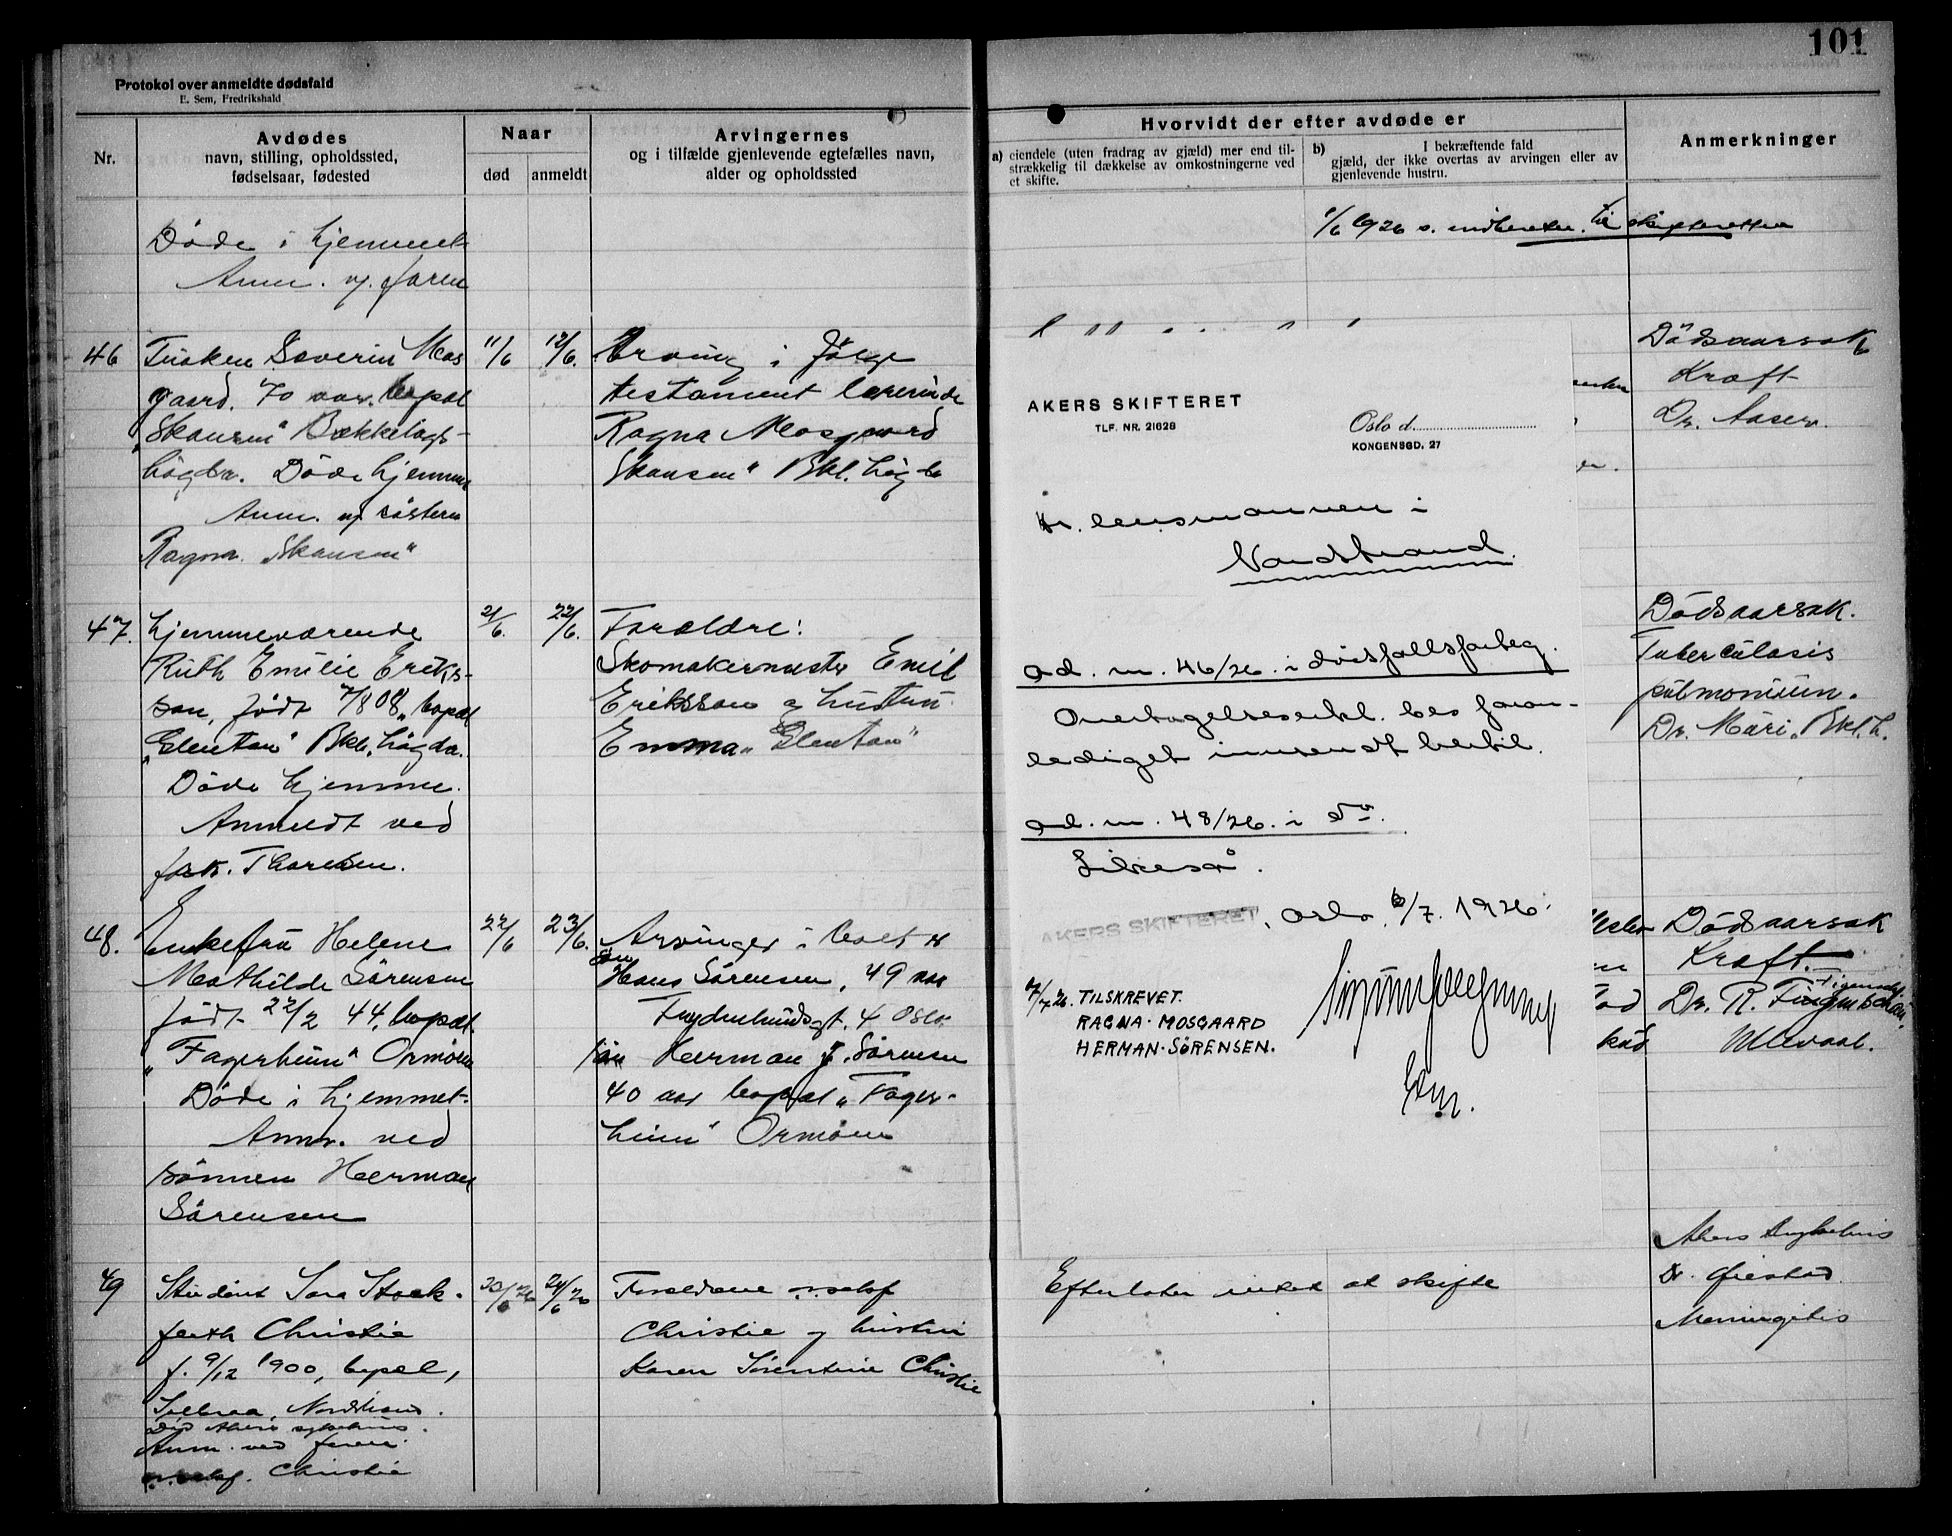 101
Protokol over anmeldte dødsfald
E. Sem, Fredrikshald
Nr.
Avdødes
navn, stilling, opholdssted,
fødselsaar, fødested
Naar
død
anmeldt
Arvingernes
og i tilfælde gjenlevende egtefælles navn,
alder og opholdssted
Hvorvidt der efter avdøde er
a) eiendele (uten fradrag av gjæld) mer end til-
strækkelig til dækkelse av omkostningerne ved
et skifte.
b) I bekræftende fald
gjæld, der ikke overtas av arvingen eller av
gjenlevende hustru.
Anmerkninger
Døde i hjemmet
Anm. av faren
1/6 1926 s. indberetn. til skifteretten
46
Frøken Severin Mos
gaard. 70 aar. bopæl
"Skansen" Bækkelags-
høgda. Döde hjemme
Anm. av søsteren
Ragna "Skansen"
11/6
12/6.
Arving i følge
testament lærerinde
Ragna Mosgaard
Skansen" Bkl. høgda
Dödsaarsak
Kræft
Dr. Aaser.
47.
Hjemmeværende
Ruth Emilie Eriks-
son, født 7/8 08, bopæl
"Glentan" Bkl. høgda.
Döde hjemme.
Anmeldt ved
fork. Thoresen.
21/6.
22/6.
Forældre:
Skomakermester Emil
Eriksson og hustru
Emma "Glentan"
Dödsaarsak.
Tuberculosis
pulmonum.
Dr. Mæri, Bkl. h.
48.
Enkefru Helene
Mathilde Sörensen
født 22/2 44, bopæl
"Fagerheim" Ormöen
Döde i hjemmet.
Anm. ved
sönnen Herman
Sörensen
22/6
23/6.
Arvinger i boet er
Søn Hans Sörensen, 49 aar
4 Oslo.
søn Herman J. Sörensen
40 aar bopæl "Fager-
heim" Ormöen
Dödsaarsak
Kræft.
Dr. R.
Ullevaal.
49
Student Sara Stock-
feth Christie
f. 9/12 1900, bopæl,
Solbraa, Nordstrand.
Död Akers sykehus.
Anm. ved faren
o.r.saksf. Christie
23/6 26
24/6 26
Forældrene o.r.saksf
Christie og hustru
Karen Sørentine Christie
Efterlater intet at skifte
Akers Sykehus
Dr. Ørestad
Meningitis
AKERS SKIFTERET
TLF. NR. 21628
Oslo d.
KONGENSGD. 27
Hr. lensmannen i
Nordstrand.
ad. nr. 46/26. i dødsfallsforteg.
Overtagelseserkl. bes foran-
lediget innsendt hertil.
ad. nr. 48/26. i do.
Likeså.
AKERS SKIFTERET, Oslo, 6/7. 1926.
7/7 26. TILSKREVET.
RAGNA MOSGAARD
HERMAN SØRENSEN.